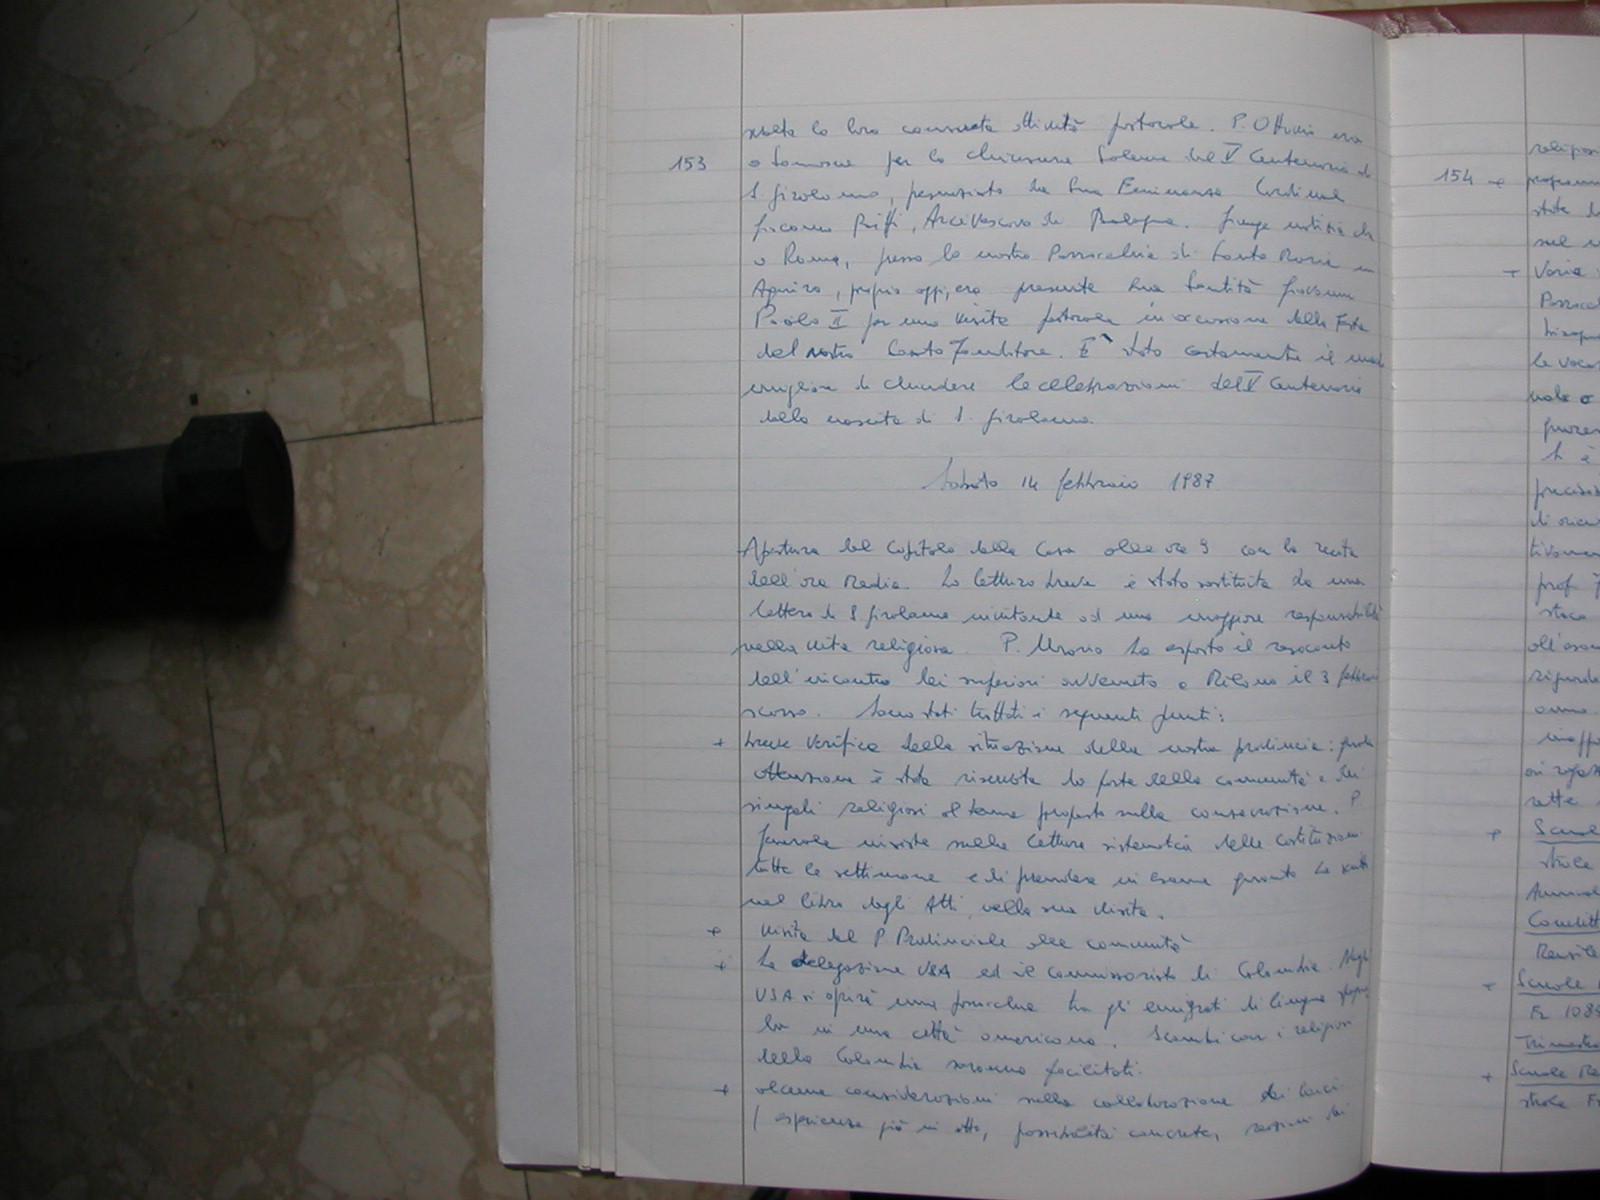 153
svolto la loro consueta attività pastorale. P. Ottavio era
a Somasca per la chiusura Solenne del V Centenario di
S. Girolamo, presenziata da Sua Eminenza Cardinal
Giacomo Biffi, Arcivescovo di Bologna. Giunge notizia che
a Roma, presso la nostra Parrocchia di Santa Maria in
Aquiro, proprio oggi, era presente Sua Santità Giovanni
Paolo II per una visita pastorale in occasione della Festa
del nostro Santo Fondatore. È stato certamente il modo
migliore di chiudere le celebrazioni del V Centenario
della nascita di S. Girolamo.
Sabato 14 febbraio 1987
Apertura del Capitolo della Casa alle ore 9 con la recita
dell'ora Media. La lettura breve è stata sostituita da una
lettera di S Girolamo invitante ad una maggiore responsabilità
nella vita religiosa. P. Mario ha esposto il resoconto
dell'incontro dei superiori avvenuto a Milano il 3 febbraio
scorso. Sono stati trattati i seguenti punti:
+ breve verifica della situazione della nostra provincia: quale
attenzione è stata riservata da parte della comunità e dei
singoli religiosi al tema proposto sulla consacrazione. P.
insiste sulla lettura sistematica delle costituzioni
tutte le settimane e di prendere in esame quanto ha scritto
nel libro degli Atti, nella sua visita.
+ visita del P Provinciale alle comunità
+ La delegazione USA ed il commissariato di Colombia. Negli
USA si aprirà una parrocchia tra gli emigrati di lingua
in una città americana. Scambi con i religiosi
della Colombia saranno facilitati.
+ alcune considerazioni sulla collaborazione dei laici
( esperienze già in atto, possibilità concrete, dei
154
+
+ Varie
le voca
prof
+
+
Fr 108
Trimestra
+